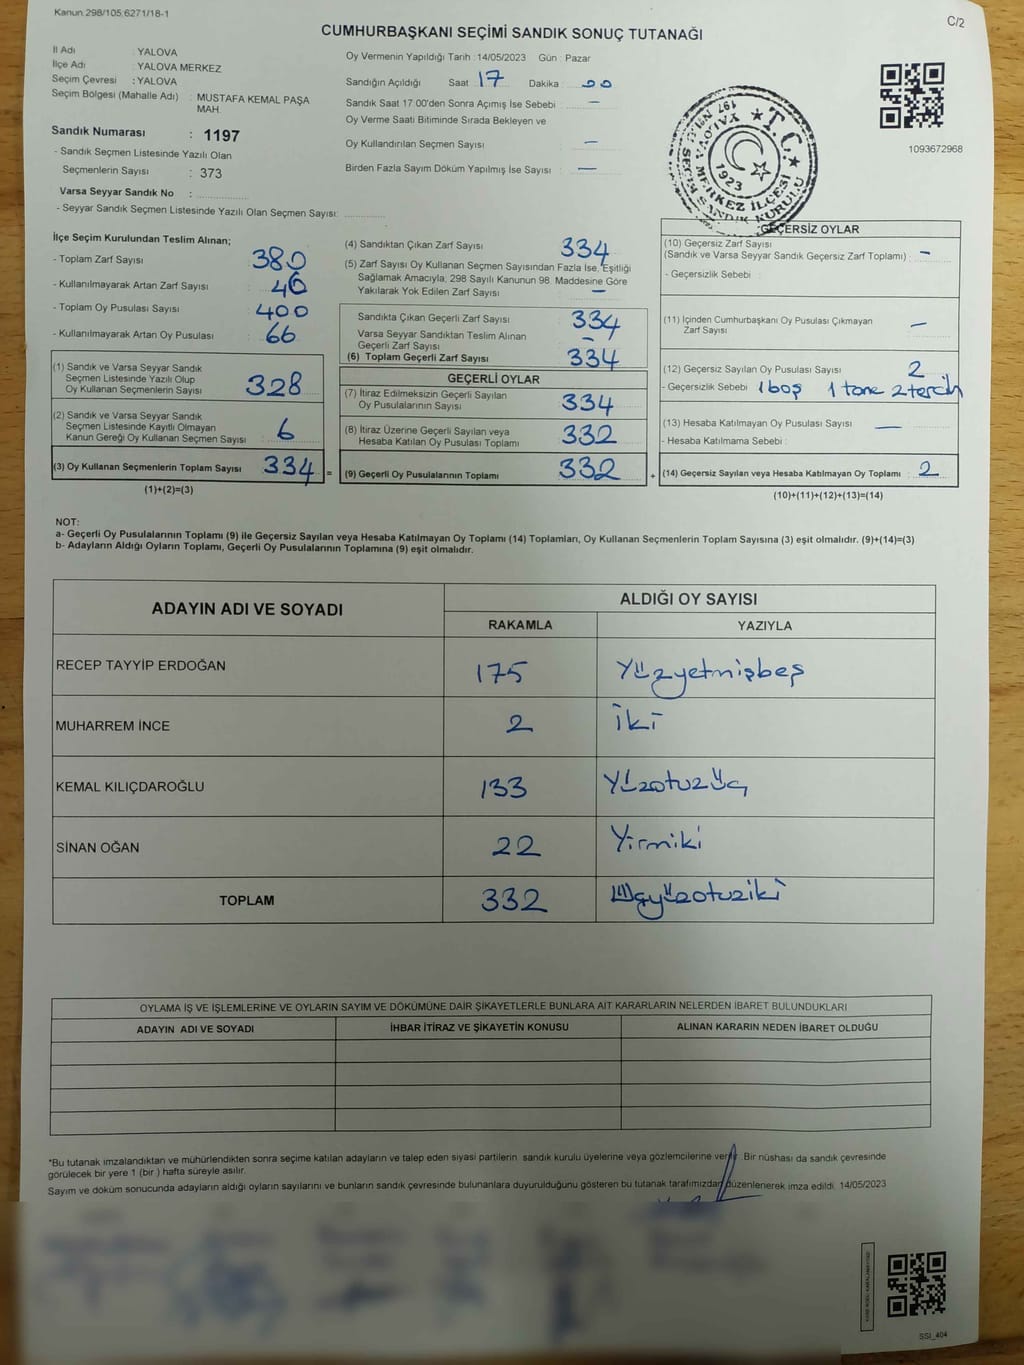 Kanun:298/105;6271/18-1
C/2
CUMHURBAŞKANI SEÇİMİ SANDIK SONUÇ TUTANAĞI
İl Adı : YALOVA
İlçe Adı : YALOVA MERKEZ
Seçim Çevresi : YALOVA
Seçim Bölgesi (Mahalle Adı) : MUSTAFA KEMAL PAŞA
MAH.
Sandık Numarası : 1197
- Sandık Seçmen Listesinde Yazılı Olan
Seçmenlerin Sayısı : 373
Varsa Seyyar Sandık No :
- Seyyar Sandık Seçmen Listesinde Yazılı Olan Seçmen Sayısı:
Oy Vermenin Yapıldığı Tarih :14/05/2023 Gün : Pazar
Sandığın Açıldığı Saat 17 Dakika : 00
Sandık Saat 17:00'den Sonra Açımış İse Sebebi : —
Oy Verme Saati Bitiminde Sırada Bekleyen ve
Oy Kullandırılan Seçmen Sayısı : —
Birden Fazla Sayım Döküm Yapılmış İse Sayısı : —
★ T.C. ★
YALOVA MERKEZ İLÇESİ
1923
1093672968
İlçe Seçim Kurulundan Teslim Alınan;
- Toplam Zarf Sayısı : 380
- Kullanılmayarak Artan Zarf Sayısı : 46
- Toplam Oy Pusulası Sayısı : 400
- Kullanılmayarak Artan Oy Pusulası : 66
(1) Sandık ve Varsa Seyyar Sandık
Seçmen Listesinde Yazılı Olup
Oy Kullanan Seçmenlerin Sayısı : 328
(2) Sandık ve Varsa Seyyar Sandık
Seçmen Listesinde Kayıtlı Olmayan
Kanun Gereği Oy Kullanan Seçmen Sayısı : 6
(3) Oy Kullanan Seçmenlerin Toplam Sayısı : 334 =
(1)+(2)=(3)
(4) Sandıktan Çıkan Zarf Sayısı : 334
(5) Zarf Sayısı Oy Kullanan Seçmen Sayısından Fazla İse, Eşitliği
Sağlamak Amacıyla; 298 Sayılı Kanunun 98. Maddesine Göre
Yakılarak Yok Edilen Zarf Sayısı : —
Sandıkta Çıkan Geçerli Zarf Sayısı : 334
Varsa Seyyar Sandıktan Teslim Alınan
Geçerli Zarf Sayısı : —
(6) Toplam Geçerli Zarf Sayısı : 334
GEÇERLİ OYLAR
(7) İtiraz Edilmeksizin Geçerli Sayılan
Oy Pusulalarının Sayısı : 334
(8) İtiraz Üzerine Geçerli Sayılan veya
Hesaba Katılan Oy Pusulası Toplamı : 332
(9) Geçerli Oy Pusulalarının Toplamı : 332 +
GEÇERSİZ OYLAR
(10) Geçersiz Zarf Sayısı
(Sandık ve Varsa Seyyar Sandık Geçersiz Zarf Toplamı) : —
- Geçersizlik Sebebi :
(11) İçinden Cumhurbaşkanı Oy Pusulası Çıkmayan
Zarf Sayısı : —
(12) Geçersiz Sayılan Oy Pusulası Sayısı : 2
- Geçersizlik Sebebi : 1 boş 1 tane 2 tercih
(13) Hesaba Katılmayan Oy Pusulası Sayısı : —
- Hesaba Katılmama Sebebi :
(14) Geçersiz Sayılan veya Hesaba Katılmayan Oy Toplamı : 2
(10)+(11)+(12)+(13)=(14)
NOT:
a- Geçerli Oy Pusulalarının Toplamı (9) ile Geçersiz Sayılan veya Hesaba Katılmayan Oy Toplamı (14) Toplamları, Oy Kullanan Seçmenlerin Toplam Sayısına (3) eşit olmalıdır. (9)+(14)=(3)
b- Adayların Aldığı Oyların Toplamı, Geçerli Oy Pusulalarının Toplamına (9) eşit olmalıdır.
ADAYIN ADI VE SOYADI ALDIĞI OY SAYISI
RAKAMLA YAZIYLA
RECEP TAYYİP ERDOĞAN 175 Yüzyetmişbeş
MUHARREM İNCE 2 İki
KEMAL KILIÇDAROĞLU 133 Yüzotuzüç
SİNAN OĞAN 22 Yirmiki
TOPLAM 332 Üçyüzotuziki
OYLAMA İŞ VE İŞLEMLERİNE VE OYLARIN SAYIM VE DÖKÜMÜNE DAİR ŞİKAYETLERLE BUNLARA AİT KARARLARIN NELERDEN İBARET BULUNDUKLARI
ADAYIN ADI VE SOYADI İHBAR İTİRAZ VE ŞİKAYETİN KONUSU ALINAN KARARIN NEDEN İBARET OLDUĞU
*Bu tutanak imzalandıktan ve mühürlendikten sonra seçime katılan adayların ve talep eden siyasi partilerin sandık kurulu üyelerine veya gözlemcilerine verilir. Bir nüshası da sandık çevresinde
görülecek bir yere 1 (bir ) hafta süreyle asılır.
Sayım ve döküm sonucunda adayların aldığı oyların sayılarını ve bunların sandık çevresinde bulunanlara duyurulduğunu gösteren bu tutanak tarafımızdan düzenlenerek imza edildi. 14/05/2023
SSI_404